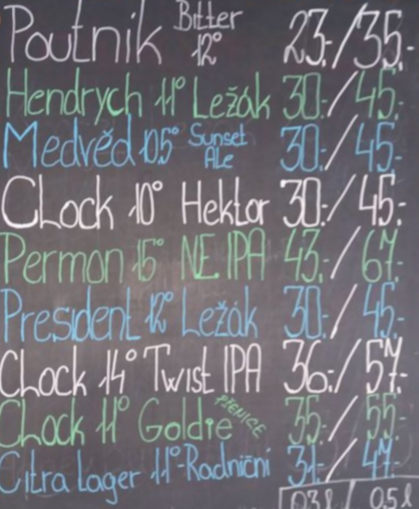 Poutník Bitter 12° 23,-/35,-
Hendrych 11° Ležák 30,-/45,-
Medvěd 10,5° Sunset Ale 30,-/45,-
Clock 10° Hektor 30,-/45,-
Permon 15° NE IPA 43,-/67,-
President 12° Ležák 30,-/45,-
Clock 14° Twist IPA 36,-/57,-
Clock 11° Goldie PŠENICE 35,-/55,-
Citra Lager 11°-Radniční 31,-/47,-
0,3 l / 0,5 l